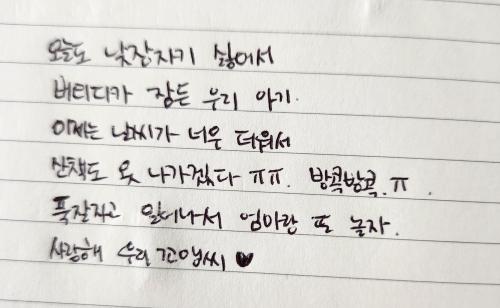 오늘도 낮잠자기 싫어서
버티다가 잠든 우리 아기.
이제는 날씨가 너무 더워서
산책도 못 나가겠다 ㅠㅠ. 방콕방콕.ㅠ.
푹잘자고 일어나서 엄마랑 또 놀자.
사랑해 우리 꼬맹씨 ♥